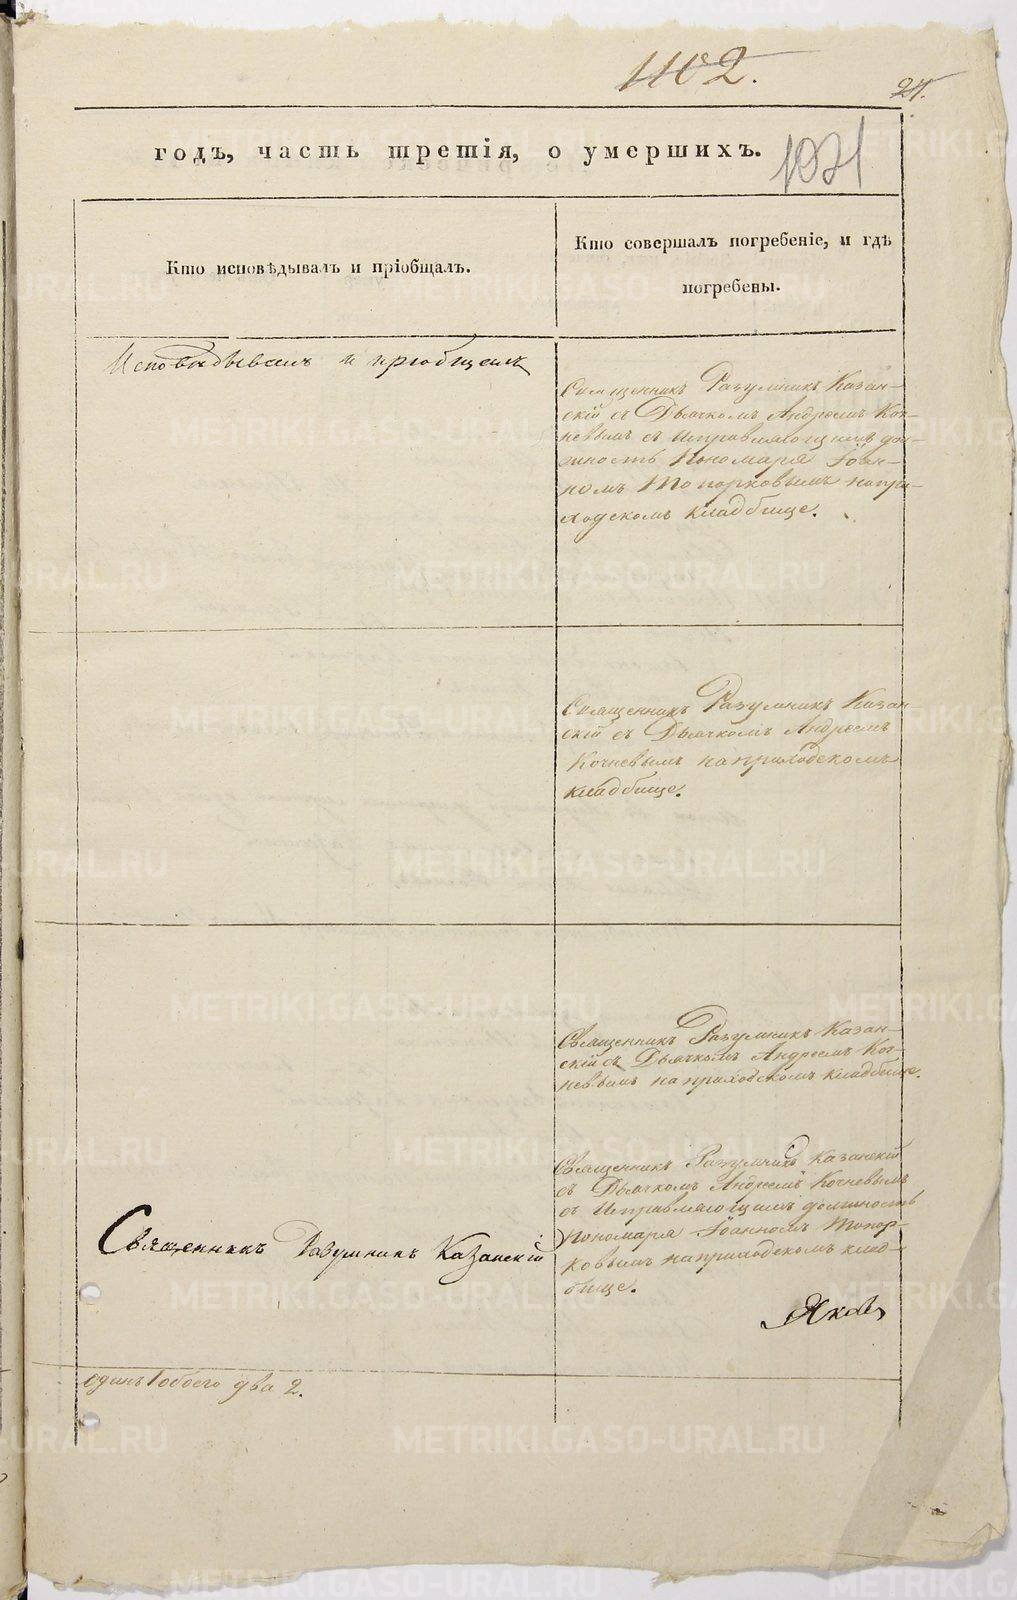 1102.
24.
годъ, часть третія, о умершихъ.
1021
Кто исповѣдывалъ и пріобщалъ.
Кто совершалъ погребеніе, и гдѣ
погребены.
Исповѣдывалъ и пріобщалъ
Священникъ Разумникъ Казан-
скій съ Дьячкомъ Андреемъ Коч-
невымъ съ Исправляющимъ дол-
жность Пономаря Іоан-
номъ Топорковымъ на при-
ходскомъ кладбище.
Священникъ Разумникъ Казан-
скій съ Дьячкомъ Андреемъ
Кочневымъ на приходскомъ
кладбище.
Священникъ Разумникъ Казан-
скій съ Дьячкомъ Андреемъ Коч-
невымъ на приходскомъ кладбище.
Священникъ Разумникъ Казанскій
съ Дьячкомъ Андреемъ Кочневымъ
съ Исправляющимъ должность
Пономаря Іоанномъ Топор-
ковымъ на приходскомъ клад-
бище.
Священникъ Разумникъ Казанскій
одинъ 1 обоего два 2.
METRIKI.GASO-URAL.RU